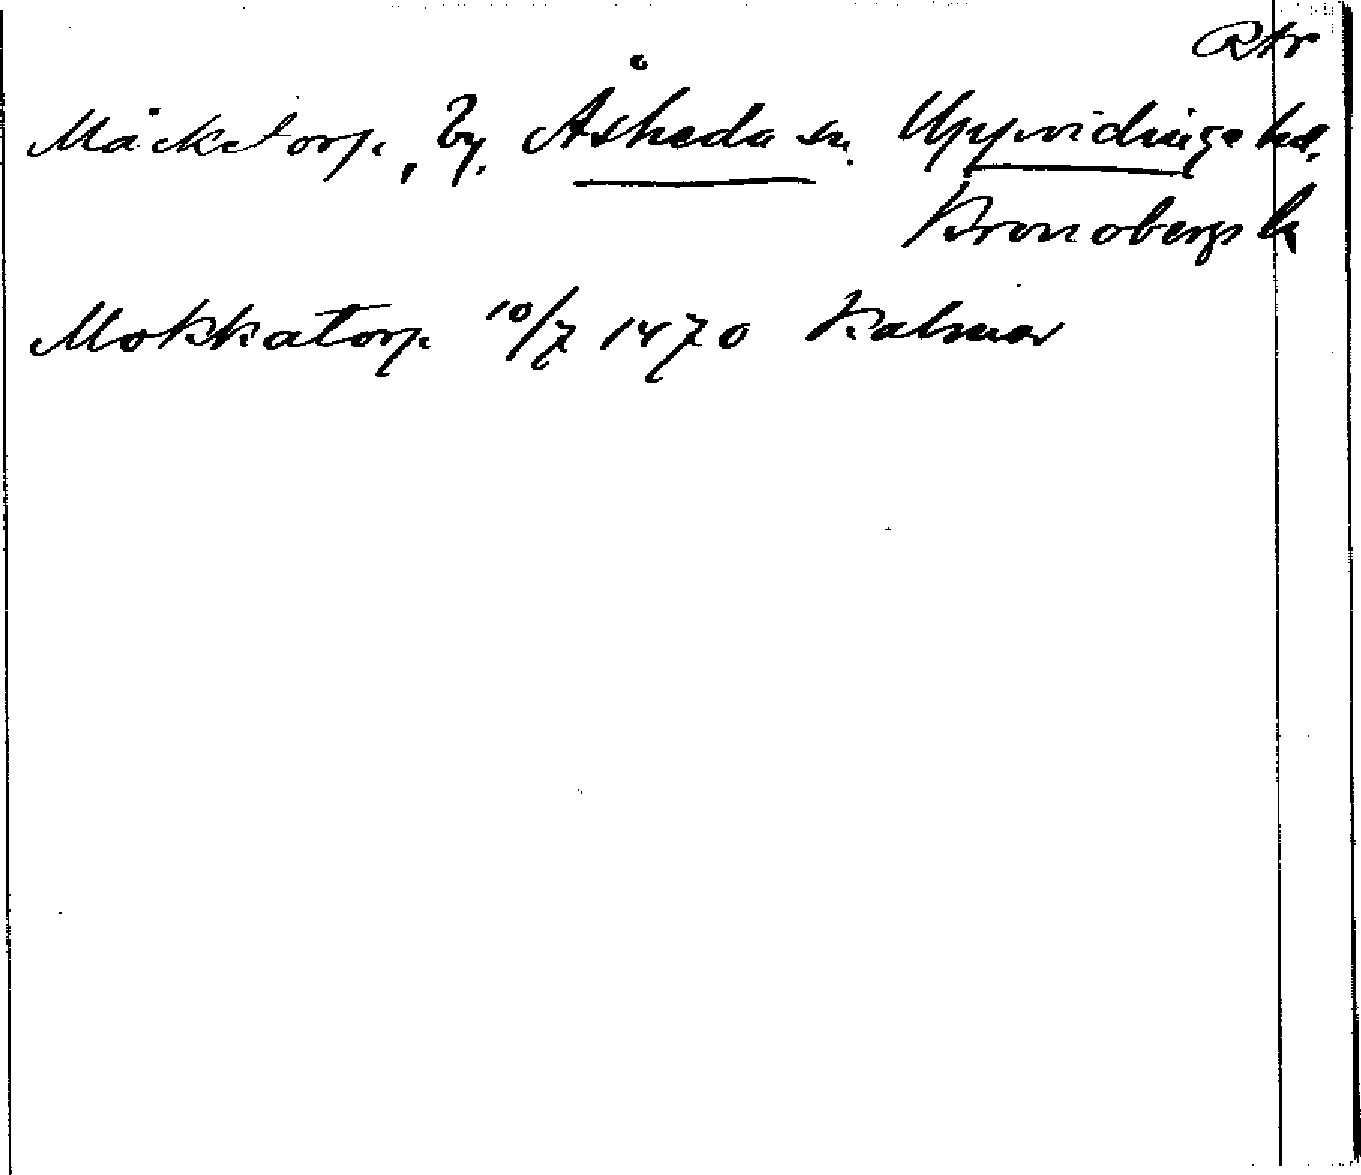 Rtr
Måcketorp, by, Åsheda sn. Uppvidinge hd.
Kronobergs l.
Mokkatorp 10/7 1470 Kalmar